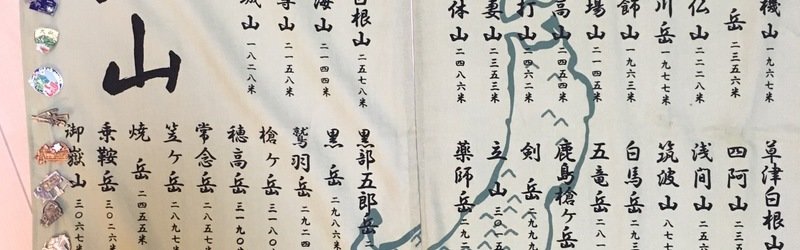 機山 一九六七米
岳 二三五六米
仏山 二二二八米
川岳 一九七七米
飾山 一九六三米
場山 二一四五米
高山 二四五四米
打山 二四六二米
妻山 二三五三米
休山 二四八六米
白根山 二五七八米
海山 二一四四米
山 二一五八米
城山 一八二八米
山
草津白根山
四阿山 二三
浅間山 二五
筑波山 八七
白馬岳 二九
五竜岳 二八一
鹿島槍ヶ岳
剣岳 二九九
立山 三〇一五
薬師岳 二九二
黒部五郎岳 二
黒岳 二九八六米
鷲羽岳 二九二四
槍ヶ岳 三一八〇
穂高岳 三一九〇
常念岳 二八五七
笠ヶ岳 二八九七
焼岳 二四五五米
乗鞍岳 三〇二六米
御嶽山 三〇六三